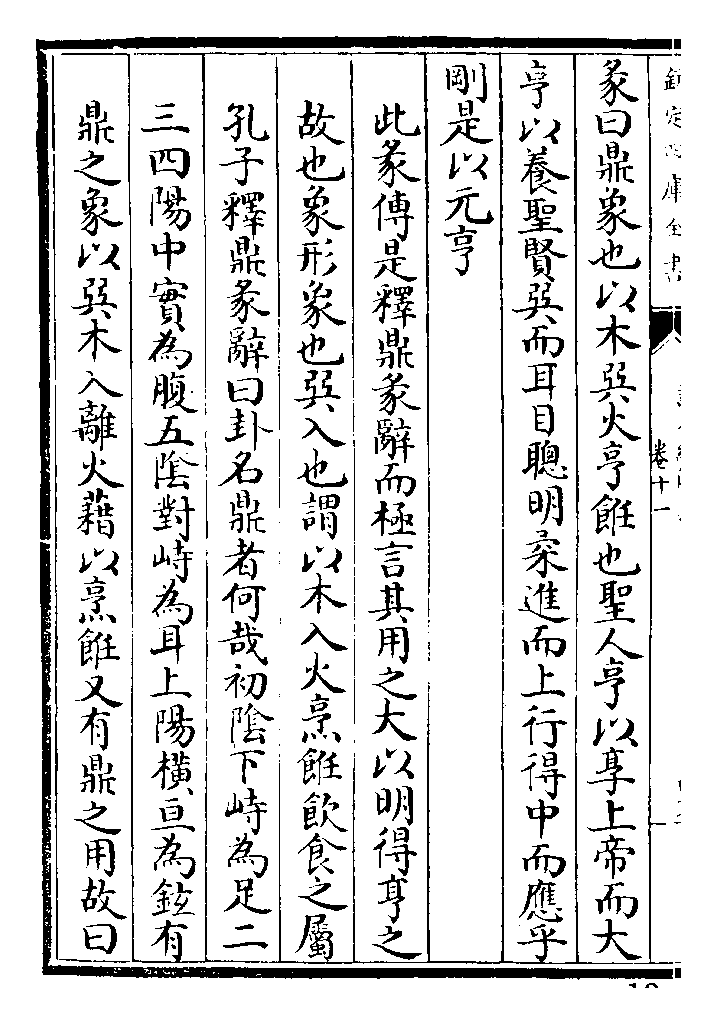 欽定四庫全書
卷十一
彖曰鼎象也以木巽火亨飪也聖人亨以享上帝而大
亨以養聖賢巽而耳目聰明柔進而上行得中而應乎
剛是以元亨
此彖傳是釋鼎彖辭而極言其用之大以明得亨之
故也象形象也巽入也謂以木入火烹飪飲食之屬
孔子釋鼎彖辭曰卦名鼎者何哉初陰下峙為足二
三四陽中實為腹五陰對峙為耳上陽橫亘為鉉有
鼎之象以巽木入離火藉以烹飪又有鼎之用故曰